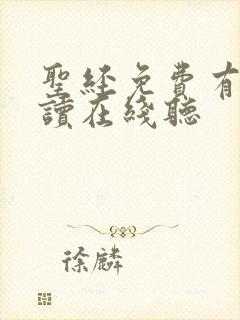 聖経免費有
讀在綫聽
徐麟